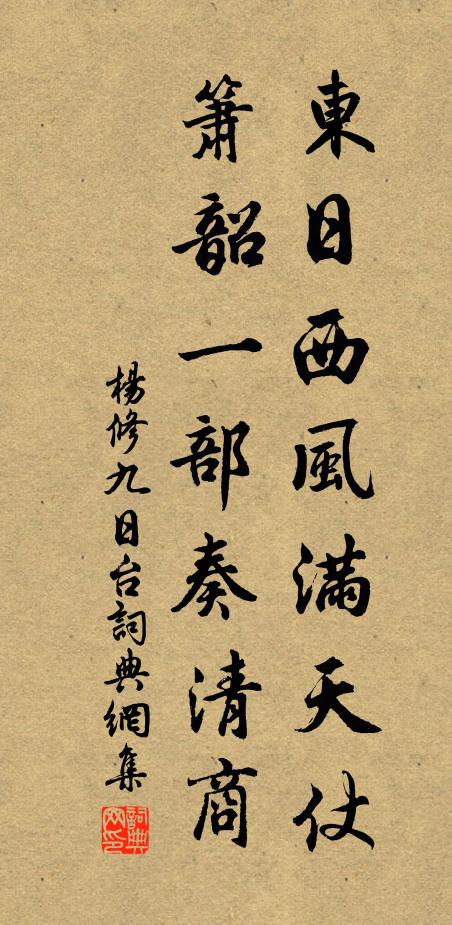 東日西風滿天仗
簫韶一部奏清商
楊修九日台詞典網集
詞典网印